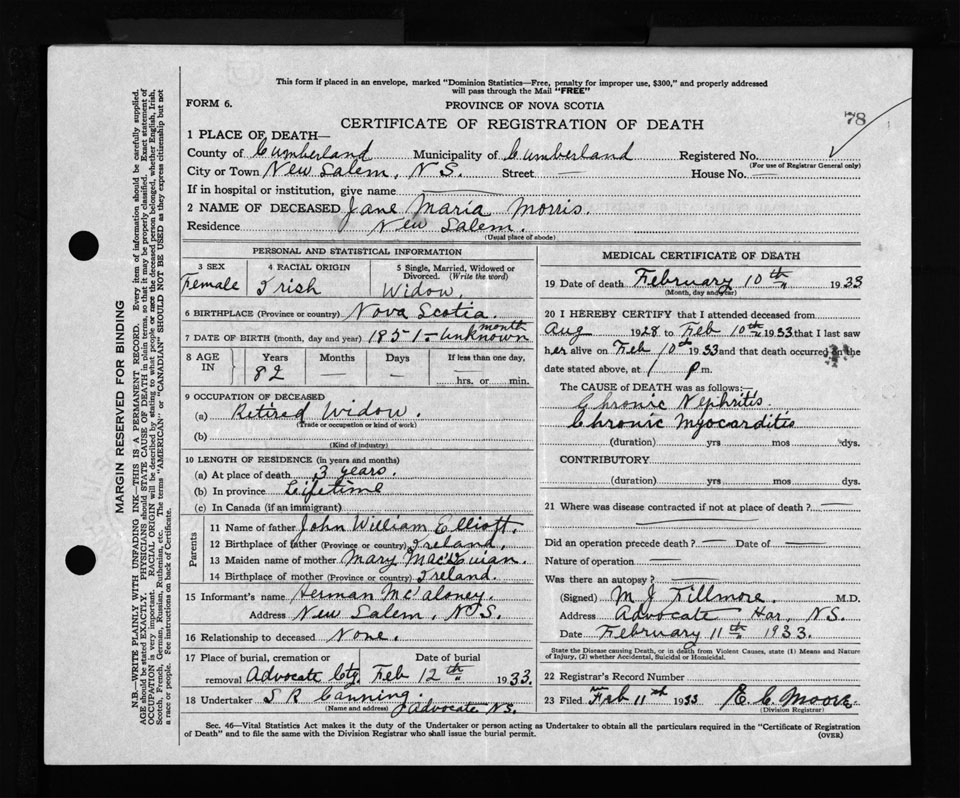 This form if placed in an envelope, marked "Dominion Statistics—Free, penalty for improper use, $300," and properly addressed
will pass through the Mail "FREE"
FORM 6.
PROVINCE OF NOVA SCOTIA
78
CERTIFICATE OF REGISTRATION OF DEATH
1 PLACE OF DEATH—
County of Cumberland Municipality of Cumberland Registered No.
(For use of Registrar General only)
City or Town New Salem, N.S. Street — House No. —
If in hospital or institution, give name
2 NAME OF DECEASED Jane Maria Morris.
Residence New Salem.
(Usual place of abode)
PERSONAL AND STATISTICAL INFORMATION
3 SEX Female
4 RACIAL ORIGIN Irish
5 Single, Married, Widowed or Divorced. (Write the word)
Widow.
6 BIRTHPLACE (Province or country) Nova Scotia.
7 DATE OF BIRTH (month, day and year) 1851 - month unknown
8 AGE IN
Years Months Days If less than one day,
82 — — hrs. or min.
9 OCCUPATION OF DECEASED
(a) Retired Widow.
(Trade or occupation or kind of work)
(b)
(Kind of industry)
10 LENGTH OF RESIDENCE (in years and months)
(a) At place of death 3 years.
(b) In province Lifetime
(c) In Canada (if an immigrant)
Parents
11 Name of father John William Elliott.
12 Birthplace of father (Province or country) Ireland.
13 Maiden name of mother Mary
14 Birthplace of mother (Province or country) Ireland.
15 Informant's name Herman McCaloney.
Address New Salem, N.S.
16 Relationship to deceased None.
17 Place of burial, cremation or removal Advocate Ctg.
Date of burial Feb 12th 1933.
18 Undertaker S R Canning.
(Name and address) Advocate N.S.
MEDICAL CERTIFICATE OF DEATH
19 Date of death February 10th 1933
(Month, day and year)
20 I HEREBY CERTIFY that I attended deceased from
Aug 1928 to Feb 10th 1933 that I last saw
her alive on Feb 10th 1933 and that death occurred on the
date stated above, at 1 P m.
The CAUSE of DEATH was as follows:—
Chronic Nephritis.
Chronic Myocarditis
(duration) yrs mos dys.
CONTRIBUTORY
(duration) yrs mos dys.
21 Where was disease contracted if not at place of death? —
Did an operation precede death? — Date of —
Nature of operation —
Was there an autopsy? —
(Signed) M J Fillmore. M.D.
Address Advocate Har, N.S.
Date February 11th 1933.
State the Disease causing Death, or in death from Violent Causes, state (1) Means and Nature
of Injury, (2) whether Accidental, Suicidal or Homicidal.
22 Registrar's Record Number
23 Filed Feb 11th 1933 E. C. Moore.
(Division Registrar)
Sec. 46—Vital Statistics Act makes it the duty of the Undertaker or person acting as Undertaker to obtain all the particulars required in the "Certificate of Registration
of Death" and to file the same with the Division Registrar who shall issue the burial permit. (OVER)
MARGIN RESERVED FOR BINDING
N.B.—WRITE PLAINLY WITH UNFADING INK—THIS IS A PERMANENT RECORD. Every item of information should be carefully supplied.
AGE should be stated EXACTLY. PHYSICIANS should STATE CAUSE OF DEATH in plain terms, so that it may be properly classified. Exact statement of
OCCUPATION is very important. RACIAL ORIGIN will be described by stating to what people or race the deceased person belonged, whether English, Irish,
Scotch, French, German, Russian, Ruthenian, etc. The terms "AMERICAN" or "CANADIAN" SHOULD NOT BE USED as they express citizenship but not
a race or people. See instructions on back of Certificate.